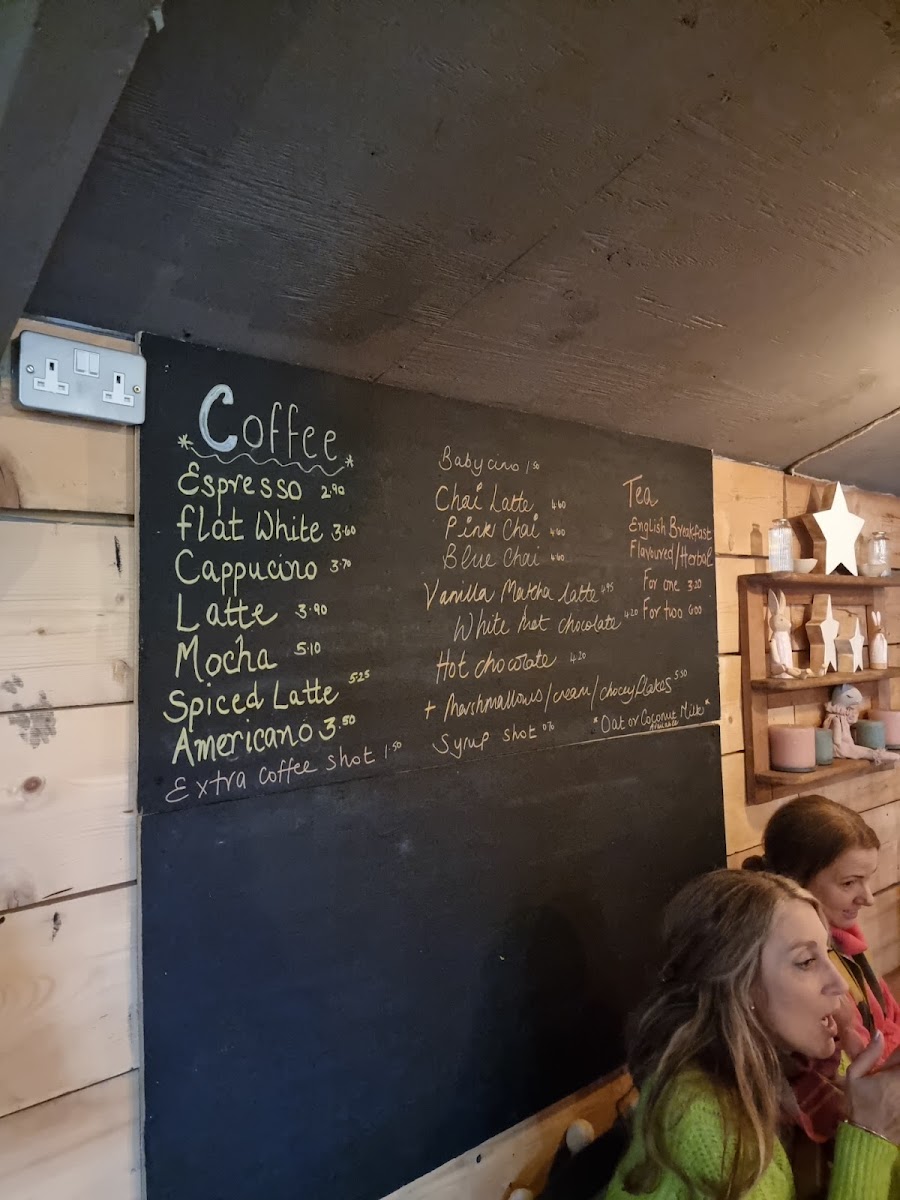 *Coffee*
Espresso 2.90
flat White 3.60
Cappucino 3.70
Latte 3.90
Mocha 5.10
Spiced Latte 5.25
Americano 3.50
Extra coffee shot 1.50
Babycino 1.50
Chai Latte 4.60
Pink Chai 4.60
Blue Chai 4.60
Vanilla Matcha latte 4.95
White hot chocolate 4.20
Hot chocolate 4.20
+ Marshmallows/cream/chocy flakes 5.50
Syrup shot
Tea
English Breakfast
Flavoured/Herbal
For one 3.20
For two 6.00
*Oat or Coconut Milk*